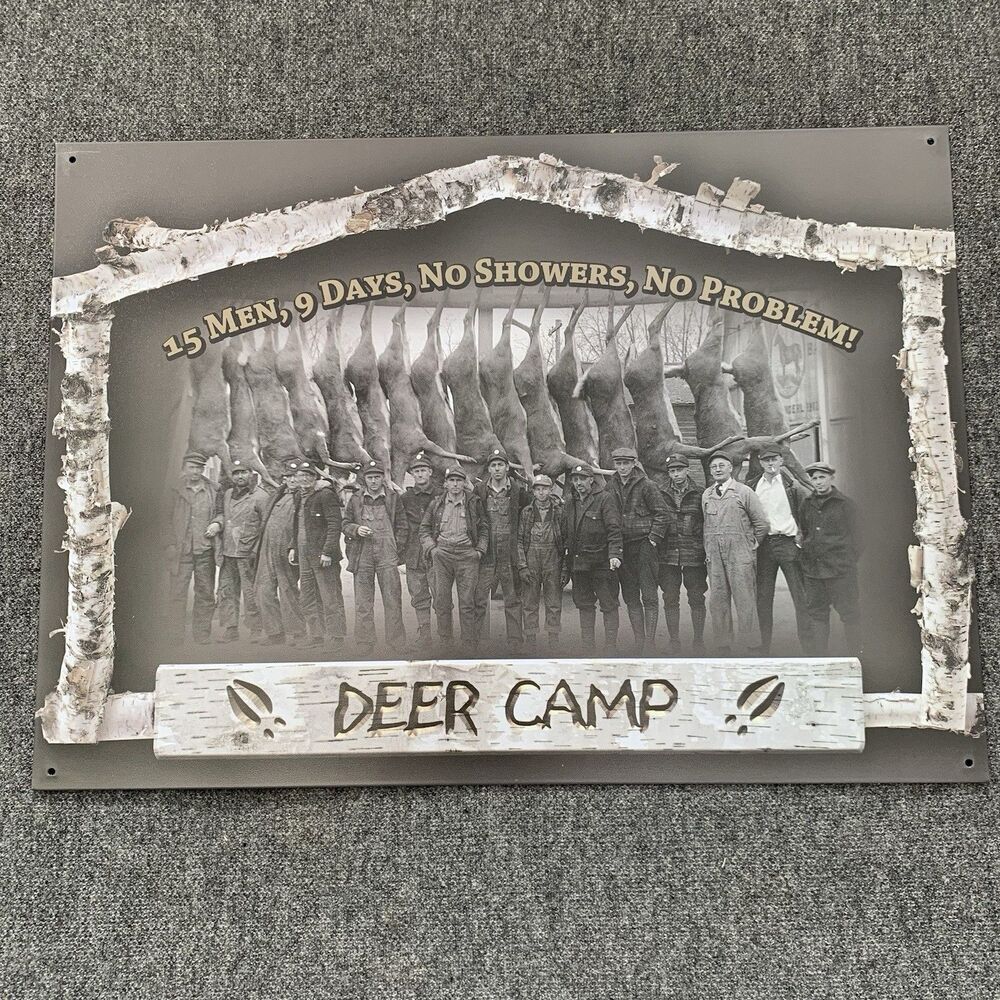 15 Men, 9 Days, No Showers, No Problem!
DEER CAMP